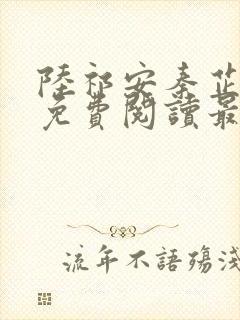 陸祁安秦芷
免費閱讀最
流年不語殤淺